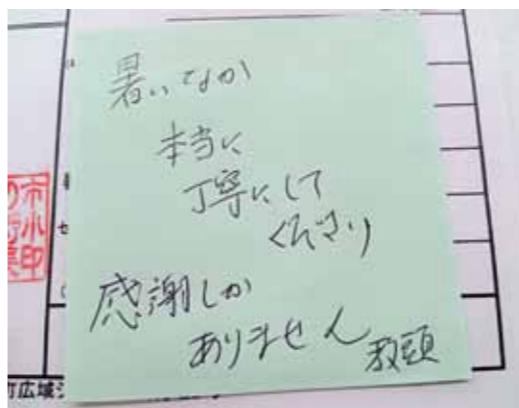 暑いなか
本当に
丁寧にして
くださり
感謝しか
ありません
教頭
町広域シ